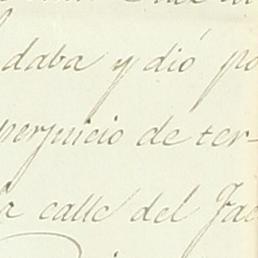 daba y dió po
perjuicio de ter-
calle del Jac